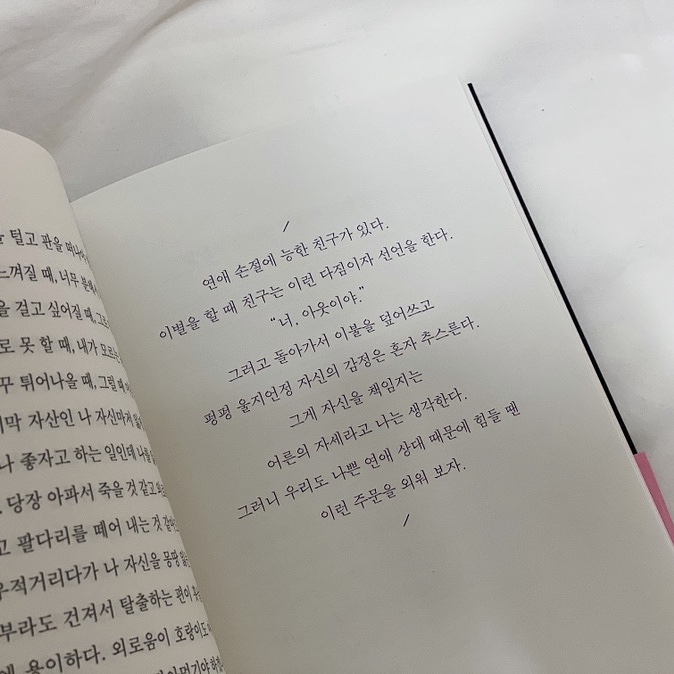 털고 판을
느껴질 때, 너무
을 걸고 싶어질 때,
로 못 할 때, 내가
튀어나올 때, 그럴 때
자산인 나 자신마저
나 좋자고 하는 일인데
당장 아파서 죽을 것 같고
고 팔다리를 떼어 내는 것
우적거리다가 나 자신을 몽땅
부라도 건져서 탈출하는 편이
용이하다. 외로움이 호랑이도
/
연애 손절에 능한 친구가 있다.
이별을 할 때 친구는 이런 다짐이자 선언을 한다.
“너, 아웃이야.”
그러고 돌아가서 이불을 덮어쓰고
펑펑 울지언정 자신의 감정은 혼자 추스른다.
그게 자신을 책임지는
어른의 자세라고 나는 생각한다.
그러니 우리도 나쁜 연애 상대 때문에 힘들 땐
이런 주문을 외워 보자.
/